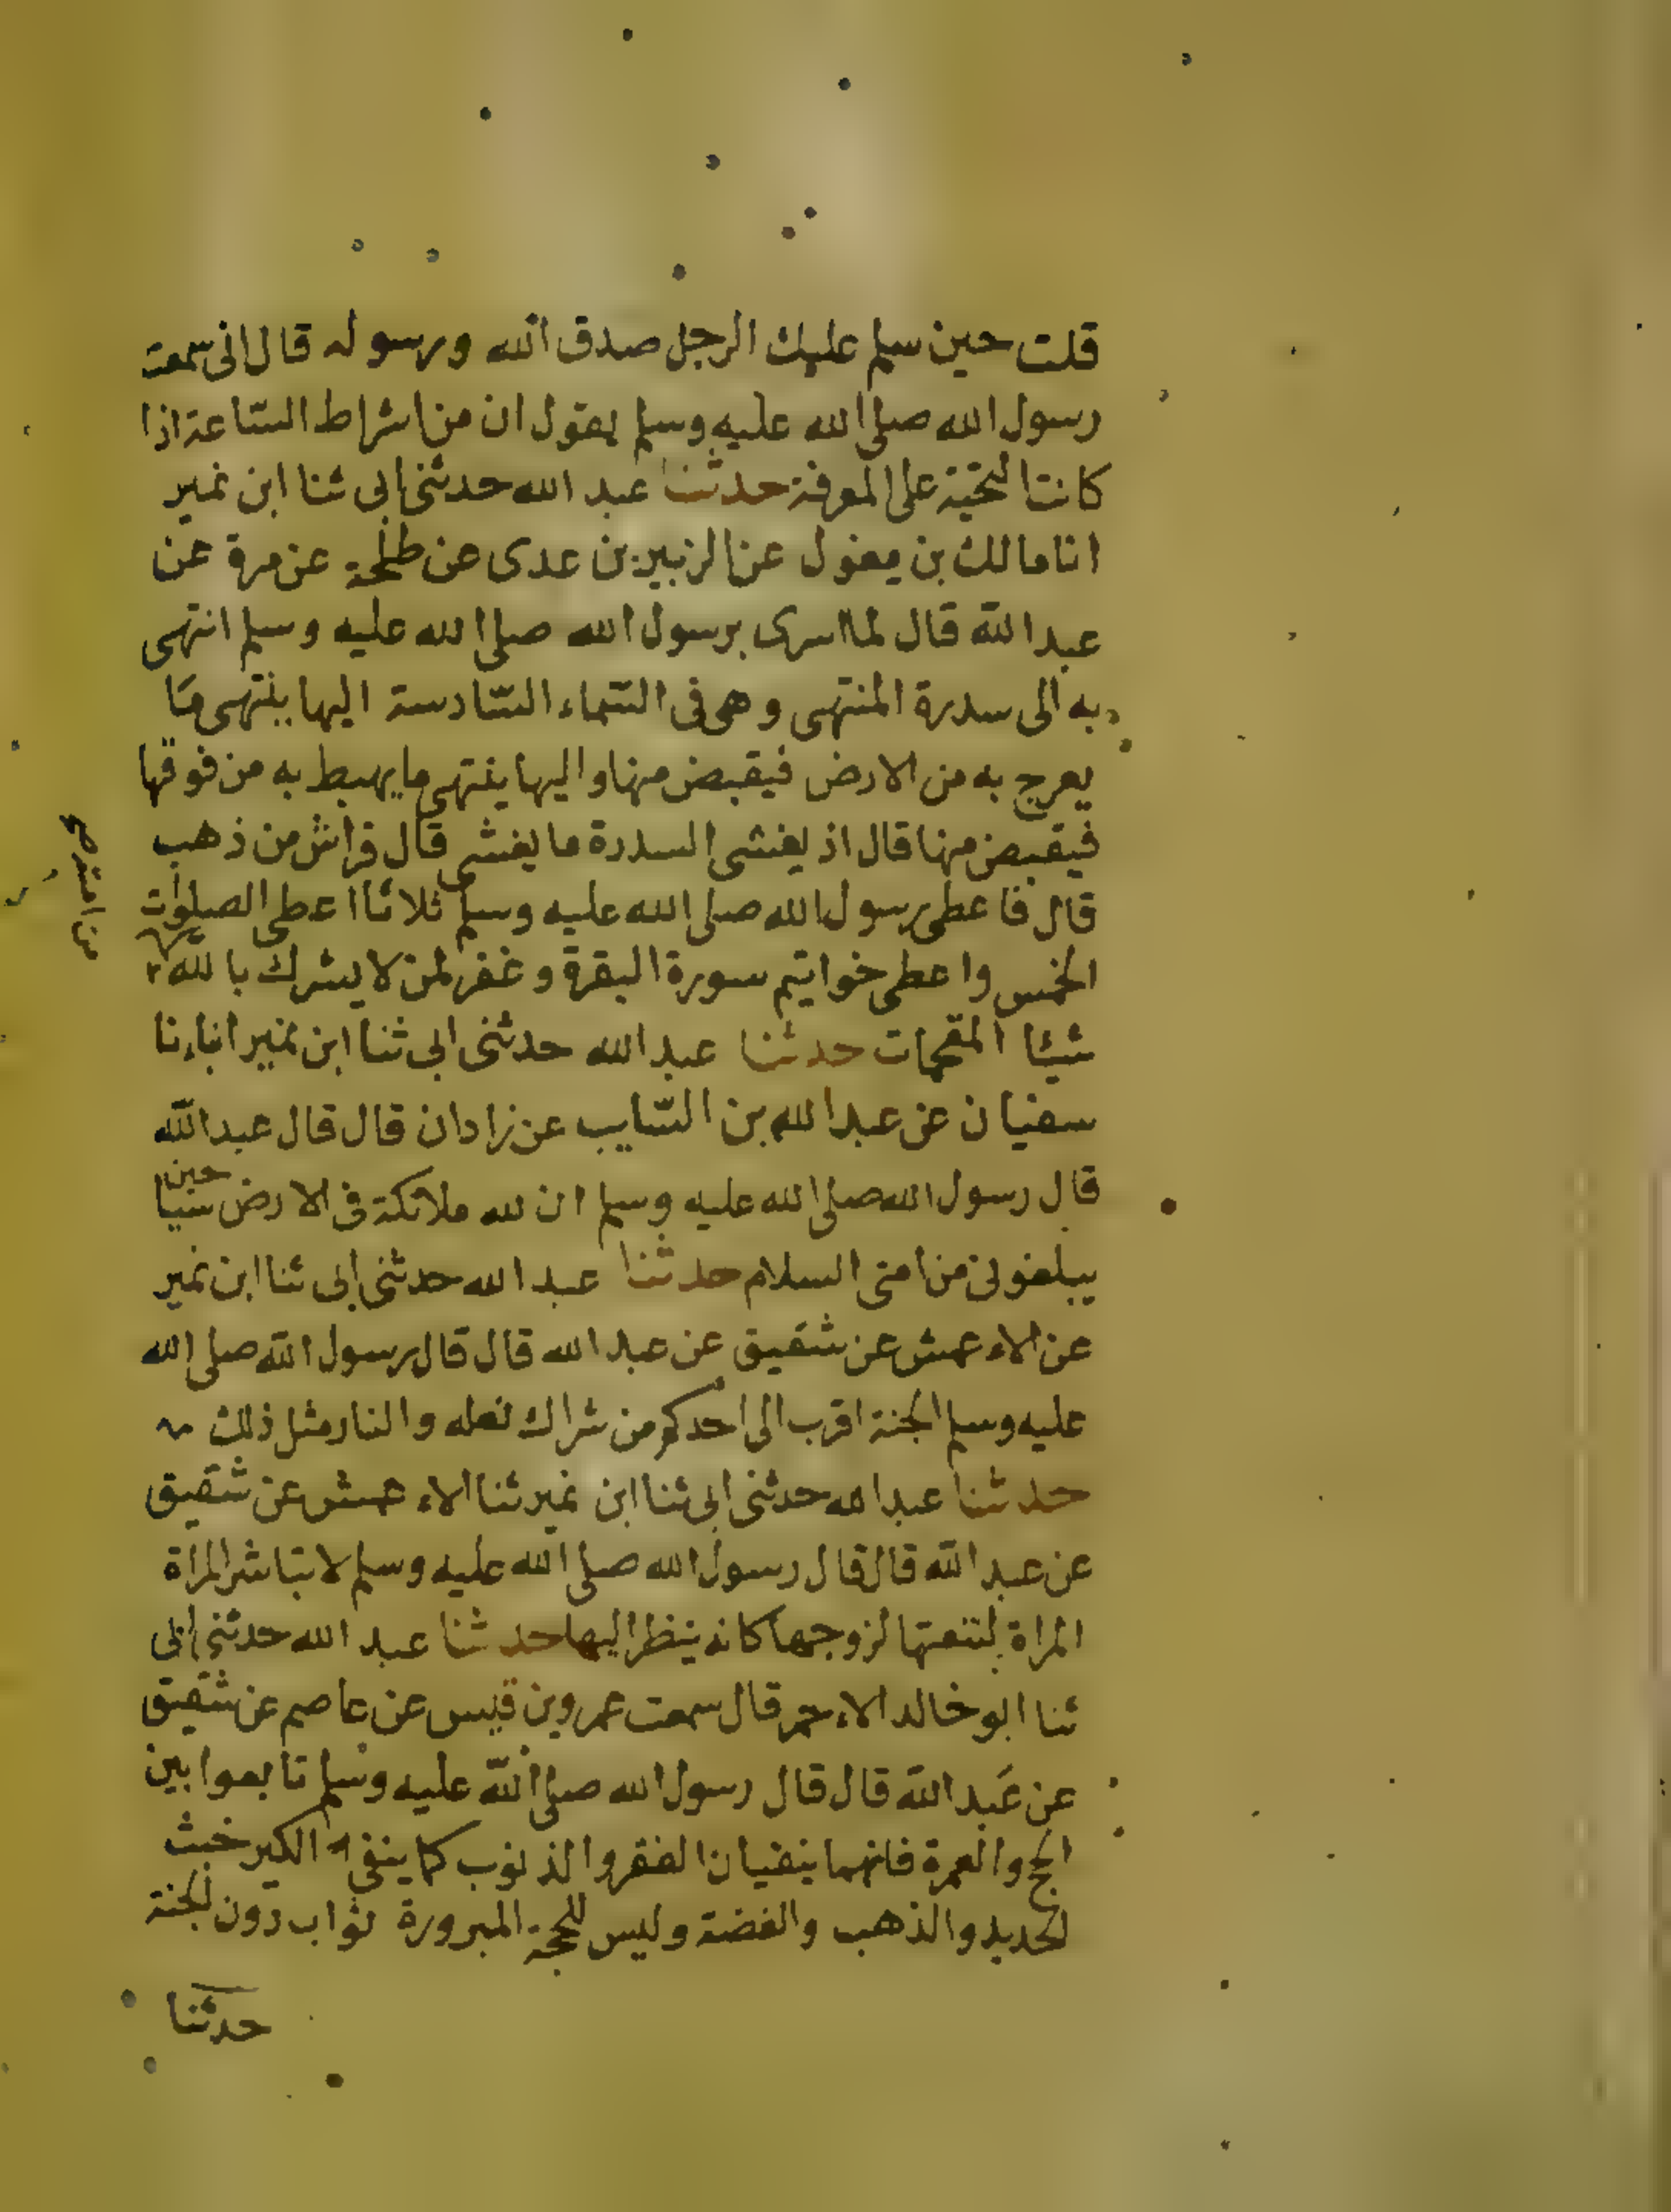 قلت حين سلم عليك الرجل صدق الله ورسوله قال انى سمعت
رسول الله صلى الله عليه وسلم يقول ان من اشراط السّاعة اذا
كانت التحيّة على المعرفة حدثنا عبد الله حدثنى ابى ثنا ابن نمير
انا مالك بن مغول عن الزبير بن عدى عن طلحة عن مرة عن
عبد الله قال لما اسرى برسول الله صلى الله عليه وسلم انتهى
به الى سدرة المنتهى وهى فى السّماء السّادسة اليها ينتهى مَا
يعرج به من الارض فيقبض منها واليها ينتهى ما يهبط به من فوقها
فيقبض منها قال اذ يغشى السدرة ما يغشى قال فراش من ذهب
قال فاعطى رسول الله صلى الله عليه وسلم ثلاثا اعطى الصلوات
الخمس واعطى خواتيم سورة البقرة وغفر لمن لا يشرك بالله
من امته صح
شيئا المقحمات حدثنا عبد الله حدثنى ابى ثنا ابن نمير انباءنا
سفيان عن عبد الله بن السّايب عن زادان قال قال عبد الله
قال رسول الله صلى الله عليه وسلم ان لله ملائكة فى الارض سياحين
يبلغونى من امتى السلام حدثنا عبد الله حدثنى ابى ثنا ابن نمير
عن الاعمش عن شقيق عن عبد الله قال قال رسول الله صلى الله
عليه وسلم الجنة اقرب الى احدكم من شراك نعله والنار مثل ذلك
حدثنا عبد الله حدثنى ابى ثنا ابن نمير ثنا الاعمش عن شقيق
عن عبد الله قال قال رسول الله صلى الله عليه وسلم لا تباشر المراة
المراة لتنعتها لزوجها كانه ينظر اليها حدثنا عبد الله حدثنى ابى
ثنا ابو خالد الاحمر قال سمعت عمرو بن قيس عن عاصم عن شقيق
عن عَبد الله قال قال رسول الله صلى الله عليه وسلم تابعوا بين
الحج والعمرة فانهما ينفيان الفقر والذنوب كما ينفى الكير خبث
الحديد والذهب والفضة وليس للحجة المبرورة ثواب دون الجنة
حدثنا